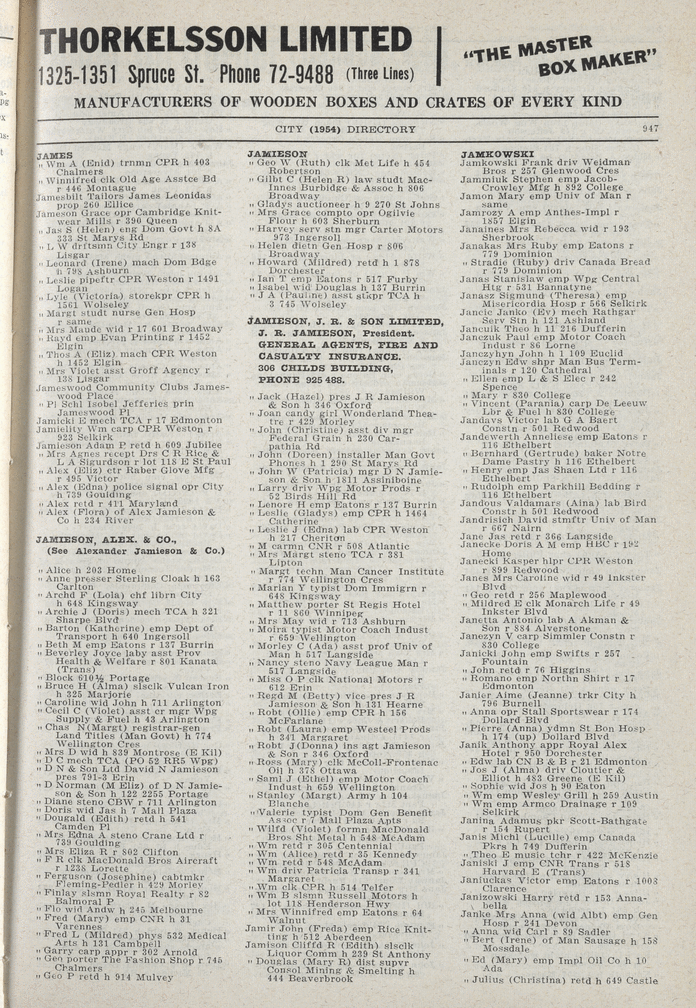 THORKELSSON LIMITED
1325-1351 Spruce St. Phone 72-9488 (Three Lines)
"THE MASTER
BOX MAKER"
MANUFACTURERS OF WOODEN BOXES AND CRATES OF EVERY KIND
CITY (1954) DIRECTORY 947
JAMES
" Wm A (Enid) trnmn CPR h 403
Chalmers
" Winnifred clk Old Age Asstce Bd
r 446 Montague
Jamesbilt Tailors James Leonidas
prop 260 Ellice
Jameson Grace opr Cambridge Knit-
wear Mills r 390 Queen
" Jas S (Helen) eng Dom Govt h 8A
333 St Marys Rd
" L W drftsmn City Engr r 138
Lisgar
" Leonard (Irene) mach Dom Bdge
h 798 Ashburn
" Leslie pipeftr CPR Western r 1491
Logan
" Lyle (Victoria) storekpr CPR h
1561 Wolseley
" Margt studt nurse Gen Hosp
r same
" Mrs Maude wid r 17 601 Broadway
" Rayd emp Evan Printing r 1452
Elgin
" Thos A (Eliz) mach CPR Weston
h 1452 Elgin
" Mrs Violet asst Groff Agency r
138 Lisgar
Jameswood Community Clubs James-
wood Place
" Pl Schl Isobel Jefferies prin
Jameswood Pl
Jamicki E mech TCA r 17 Edmonton
Jamielity Wm carp CPR Weston r
923 Selkirk
Jamieson Adam P retd h 609 Jubilee
" Mrs Agnes recept Drs C R Rice &
L A Sigurdson r lot 118 E St Paul
" Alex (Eliz) ctr Raber Glove Mfg
r 495 Victor
" Alex (Edna) police signal opr City
h 739 Goulding
" Alex retd r 411 Maryland
" Alex (Flora) of Alex Jamieson &
Co h 234 River
JAMIESON, ALEX. & CO.,
(See Alexander Jamieson & Co.)
" Alice h 203 Home
" Anne presser Sterling Cloak h 163
Carlton
" Archd F (Lola) chf librn City
h 648 Kingsway
" Archie J (Doris) mech TCA h 321
Sharpe Blvd
" Barton (Katherine) emp Dept of
Transport h 640 Ingersoll
" Beth M emp Eatons r 137 Burrin
" Beverley Joyce laby asst Prov
Health & Welfare r 801 Kanata
(Trans)
" Block 610½ Portage
" Bruce H (Alma) slsclk Vulcan Iron
h 325 Marjorie
" Caroline wid John h 711 Arlington
" Cecil C (Violet) asst cr mgr Wpg
Supply & Fuel h 43 Arlington
" Chas N(Margt) registrar-gen
Land Titles (Man Govt) h 774
Wellington Cres
" Mrs D wid h 839 Montrose (E Kil)
" D C mech TCA (PO 52 RR5 Wpg)
" D N & Son Ltd David N Jamieson
pres 791-3 Erin
" D Norman (M Eliz) of D N Jamie-
son & Son h 122 2255 Portage
" Diane steno CBW r 711 Arlington
" Doris wid Jas h 7 Mall Plaza
" Dougald (Edith) retd h 541
Camden Pl
" Mrs Edna A steno Crane Ltd r
739 Goulding
" Mrs Eliza R r 802 Clifton
" F R clk MacDonald Bros Aircraft
r 1238 Lorette
" Ferguson (Josephine) cabtmkr
Fleming-Pedler h 429 Morley
" Finlay slsmn Royal Realty r 82
Balmoral P
" Flo wid Andw h 245 Melbourne
" Fred (Mary) emp CNR h 31
Varennes
" Fred L (Mildred) phys 532 Medical
Arts h 131 Campbell
" Garry carp appr r 302 Arnold
" Geo porter The Fashion Shop r 745
Chalmers
" Geo P retd h 914 Mulvey
JAMIESON
" Geo W (Ruth) clk Met Life h 454
Robertson
" Gilbt C (Helen R) law studt Mac-
Innes Burbidge & Assoc h 806
Broadway
" Gladys auctioneer h 9 270 St Johns
" Mrs Grace compto opr Ogilvie
Flour h 603 Sherburn
" Harvey serv stn mgr Carter Motors
973 Ingersoll
" Helen dietn Gen Hosp r 806
Broadway
" Howard (Mildred) retd h 1 878
Dorchester
" Ian T emp Eatons r 517 Furby
" Isabel wid Douglas h 137 Burrin
" J A (Pauline) asst stkpr TCA h
3 745 Wolseley
JAMIESON, J. R. & SON LIMITED,
J. R. JAMIESON, President.
GENERAL AGENTS, FIRE AND
CASUALTY INSURANCE.
306 CHILDS BUILDING,
PHONE 925 488.
" Jack (Hazel) pres J R Jamieson
& Son h 346 Oxford
" Joan candy girl Wonderland Thea-
tre r 429 Morley
" John (Christine) asst div mgr
Federal Grain h 230 Car-
pathia Rd
" John (Doreen) installer Man Govt
Phones h 1 290 St Marys Rd
" John W (Patricia) mgr D N Jamie-
son & Son h 1811 Assiniboine
" Larry driv Wpg Motor Prods r
52 Birds Hill Rd
" Lenore H emp Eatons r 137 Burrin
" Leslie (Gladys) emp CPR h 1464
Catherine
" Leslie J (Edna) lab CPR Weston
h 217 Cheriton
" M carmn CNR r 508 Atlantic
" Mrs Margt steno TCA r 381
Lipton
" Margt techn Man Cancer Institute
r 774 Wellington Cres
" Marian Y typist Dom Immigrn r
648 Kingsway
" Matthew porter St Regis Hotel
r 11 860 Winnipeg
" Mrs May wid r 713 Ashburn
" Moira typist Motor Coach Indust
r 659 Wellington
" Morley C (Ada) asst prof Univ of
Man h 517 Langside
" Nancy steno Navy League Man r
517 Langside
" Miss O P clk National Motors r
612 Erin
" Regd M (Betty) vice pres J R
Jamieson & Son h 131 Hearne
" Robt (Ollie) emp CPR h 156
McFarlane
" Robt (Laura) emp Westeel Prods
h 341 Margaret
" Robt J(Donna) ins agt Jamieson
& Son r 346 Oxford
" Ross (Mary) clk McColl-Frontenac
Oil h 378 Ottawa
" Saml J (Ethel) emp Motor Coach
Indust h 659 Wellington
" Stanley (Margt) Army h 104
Blanche
" Valerie typist Dom Gen Benefit
Assoc r 7 Mall Plaza Apts
" Wilfd (Violet) formn MacDonald
Bros Sht Metal h 548 McAdam
" Wm retd r 305 Centennial
" Wm (Alice) retd r 35 Kennedy
" Wm retd r 548 McAdam
" Wm driv Patricia Transp r 341
Margaret
" Wm clk CPR h 514 Telfer
" Wm B slsmn Russell Motors h
lot 118 Henderson Hwy
" Mrs Winnifred emp Eatons r 64
Walnut
Jamir John (Freda) emp Rice Knit-
ting h 512 Aberdeen
Jamison Cliffd R (Edith) slsclk
Liquor Comm h 239 St Anthony
" Douglas (Mary R) dist supvr
Consol Mining & Smelting h
444 Beaverbrook
JAMKOWSKI
Jamkowski Frank driv Weidman
Bros r 257 Glenwood Cres
Jammiuk Stephen emp Jacob-
Crowley Mfg h 892 College
Jamon Mary emp Univ of Man r
same
Jamrozy A emp Anthes-Impl r
1857 Elgin
Janaines Mrs Rebecca wid r 193
Sherbrook
Janakas Mrs Ruby emp Eatons r
779 Dominion
" Stradie (Ruby) driv Canada Bread
r 779 Dominion
Janas Stanislaw emp Wpg Central
Htg r 531 Bannatyne
Janasz Sigmund (Theresa) emp
Misericordia Hosp r 566 Selkirk
Jancie Janko (Ev) mech Rathgar
Serv Stn h 121 Ashland
Jancuik Theo h 11 216 Dufferin
Janczuk Paul emp Motor Coach
Indust r 86 Lorne
Janczyhyn John h 1 109 Euclid
Janczyn Edw shpr Man Bus Term-
inals r 120 Cathedral
" Ellen emp L & S Elec r 242
Spence
" Mary r 830 College
" Vincent (Parania) carp De Leeuw
Lbr & Fuel h 830 College
Jandavs Victor lab G A Baert
Constn r 501 Redwood
Jandewerth Anneliese emp Eatons r
116 Ethelbert
" Bernhard (Gertrude) baker Notre
Dame Pastry h 116 Ethelbert
" Henry emp Jas Shaen Ltd r 116
Ethelbert
" Rudolph emp Parkhill Bedding r
116 Ethelbert
Jandous Valdamars (Aina) lab Bird
Constn h 501 Redwood
Jandrisich David stmftr Univ of Man
r 667 Nairn
Jane Jas retd r 366 Langside
Janecke Doris A M emp HBC r 192
Home
Janecki Kasper hlpr CPR Weston
r 899 Redwood
Janes Mrs Caroline wid r 49 Inkster
Blvd
" Geo retd r 256 Maplewood
" Mildred E clk Monarch Life r 49
Inkster Blvd
Janetta Antonio lab A Akman &
Son r 884 Alverstone
Janezyn V carp Simmler Constn r
830 College
Janicki John emp Swifts r 257
Fountain
" John retd r 76 Higgins
" Romano emp Northn Shirt r 17
Edmonton
Janier Aime (Jeanne) trkr City h
796 Burnell
" Anna opr Stall Sportswear r 174
Dollard Blvd
" Pierre (Anna) ydmn St Bon Hosp
h 174 (up) Dollard Blvd
Janik Anthony appr Royal Alex
Hotel r 950 Dorchester
" Edw lab CN B & B r 21 Edmonton
" Jos J (Alma) driv Cloutier &
Elliot h 483 Greene (E Kil)
" Sophie wid Jos h 90 Eaton
" Wm emp Wesley Grill h 259 Austin
" Wm emp Armco Drainage r 109
Selkirk
Janina Adamus pkr Scott-Bathgate
r 154 Rupert
Janis Michl (Lucille) emp Canada
Pkrs h 749 Dufferin
" Theo E music tchr r 422 McKenzie
Janiski J emp CNR Trans r 518
Harvard E (Trans)
Janiuckas Victor emp Eatons r 1008
Clarence
Janizowski Harry retd r 153 Anna-
bella
Janke Mrs Anna (wid Albt) emp Gen
Hosp r 241 Devon
" Anna wid Carl r 89 Sadler
" Bert (Irene) of Man Sausage h 158
Mossdale
" Ed (Mary) emp Impl Oil Co h 10
Ada
" Julius (Christina) retd h 649 Castle